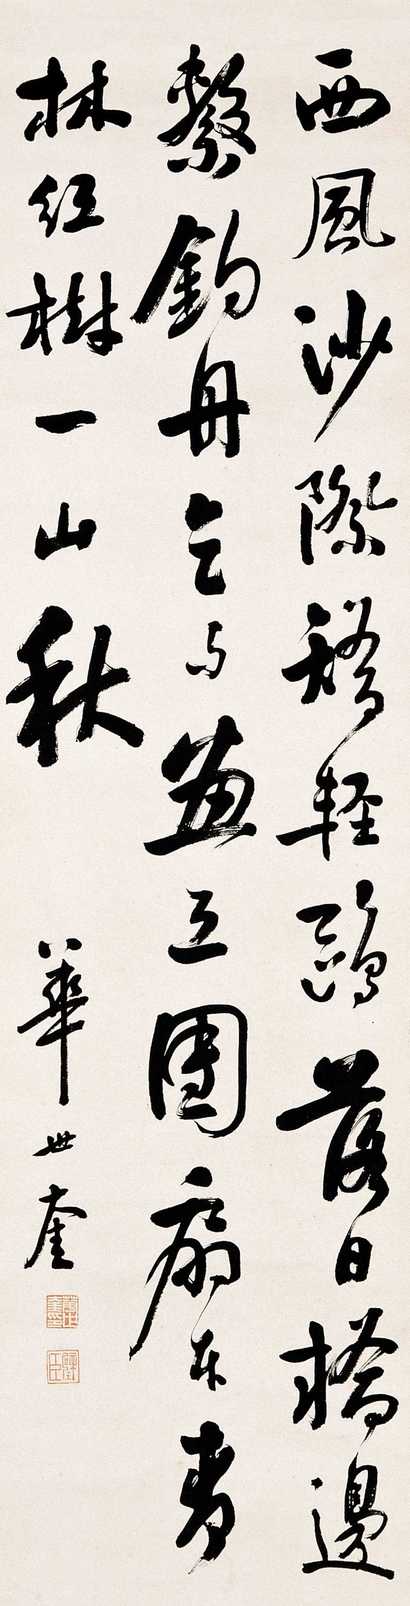 西風沙際矯輕鷗落日橋邊
繫釣舟乞与畫工團扇本青
林紅樹一山秋
華世奎